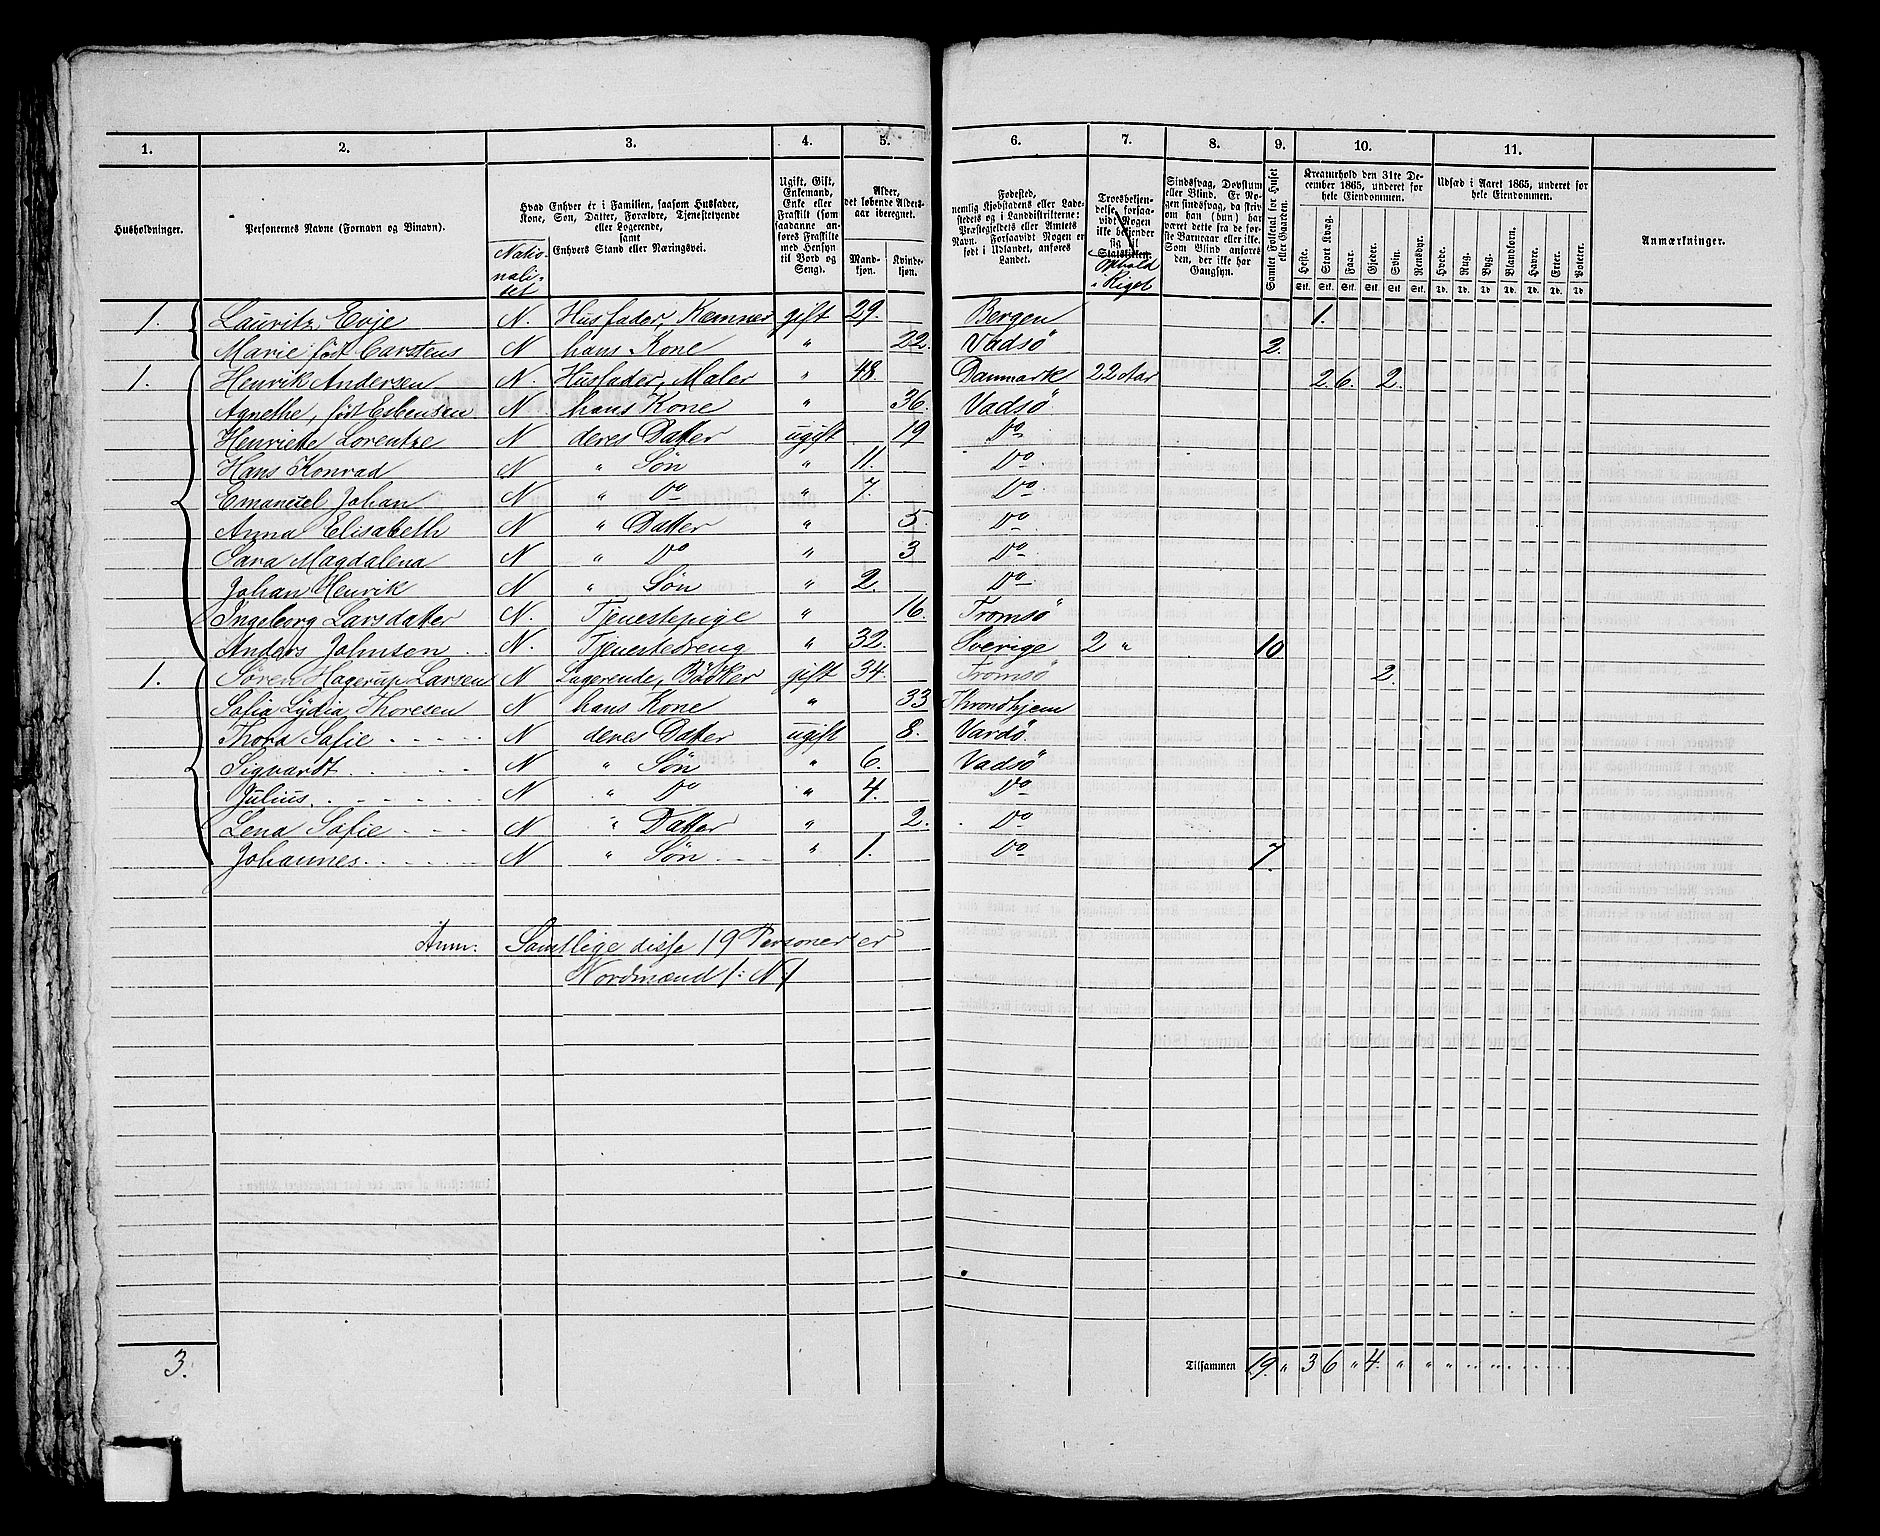 1. 2. 3. 4. 5. 6. 7. 8. 9. 10. 11.
Husholdninger.
Personernes Navne (Fornavn og Binavn).
Hvad Enhver er i Familien, saasom Husfader,
Kone, Søn, Datter, Forældre, Tjenestetyende
eller Logerende,
samt
Enhvers Stand eller Næringsvei.
Natio-
nali-
tet
Ugift, Gift,
Enkemand,
Enke eller
Fraskilt (som
saadanne an-
føres Fraskilte
med Hensyn
til Bord og
Seng).
Alder,
det løbende Alders-
aar iberegnet.
Mand-
kjøn.
Kvinde-
kjøn.
Fødested,
nemlig Kjøbstadens eller Lade-
stedets og i Landdistrikterne:
Præstegjeldets eller Amtets
Navn. Forsaavidt Nogen er
født i Udlandet, anføres
Landet.
Troesbekjen-
delse, forsaa-
vidt Nogen
ikke bekjender
sig til
Statskirken.
Ophold
i Riget
Sindssvag, Døvstum
eller Blind. Er No-
gen sindssvag, da skriv
om han (hun) har
været dette fra de før-
ste Barneaar eller ikke.
Som Blind anføres
den, der ikke har
Gangsyn.
Samlet Folketal for Huset
eller Gaarden.
Kreaturhold den 31te De-
cember 1865, underet for
hele Eiendommen.
Heste. Stort Kvæg. Faar. Gjeder. Svin. Rensdyr.
Stk. Stk. Stk. Stk. Stk. Stk.
Udsæd i Aaret 1865, underet for
hele Eiendommen.
Hvede. Rug. Byg. Blandkorn. Havre. Erter. Poteter.
Td. Td. Td. Td. Td. Td. Td.
Anmærkninger.
1. Lauritz Evje N. Husfader, Kæmner gift 29. Bergen 1.
Marie født Carstens N hans Kone " 22. Vadsö 2.
1. Henrik Andersen N. Husfader, Maler " 48. Danmark 22 Aar 2. 6. 2.
Agnethe, født Esbensen N hans Kone " 36. Vadsö.
Henriette Lorentze N deres Datter ugift 19 Do
Hans Konrad N " Søn " 11. Do
Emanuel Johan N " Do " 7. Do
Anna Elisabeth N " Datter " 5. Do
Sara Magdalena N " Do " 3 Do
Johan Henrik N " Søn " 2. Do
Ingeborg Larsdatter N. Tjenestepige " 16. Tromsö
Anders Johnsen N. Tjenestedreng " 32. Sverige 2 " 10
1. Søren Hagerup Larsen N Logerende, Bødker gift 34. Tromsö 2.
Sofia Lydia Thoresen N hans Kone " 33 Throndhjem
Thora Sofie N deres Datter ugift 8. Vardö
Sigvardt N " Søn " 6. Vadsö
Julius N " Do " 4. Do
Lena Sofie N " Datter " 2. Do
Johannes N " Søn " 1. Do 7.
Anm. Samtlige disse 19 Personer er
Nordmænd /: N /
3. Tilsammen 19. " 3 6 " 4. " " " " " " " "